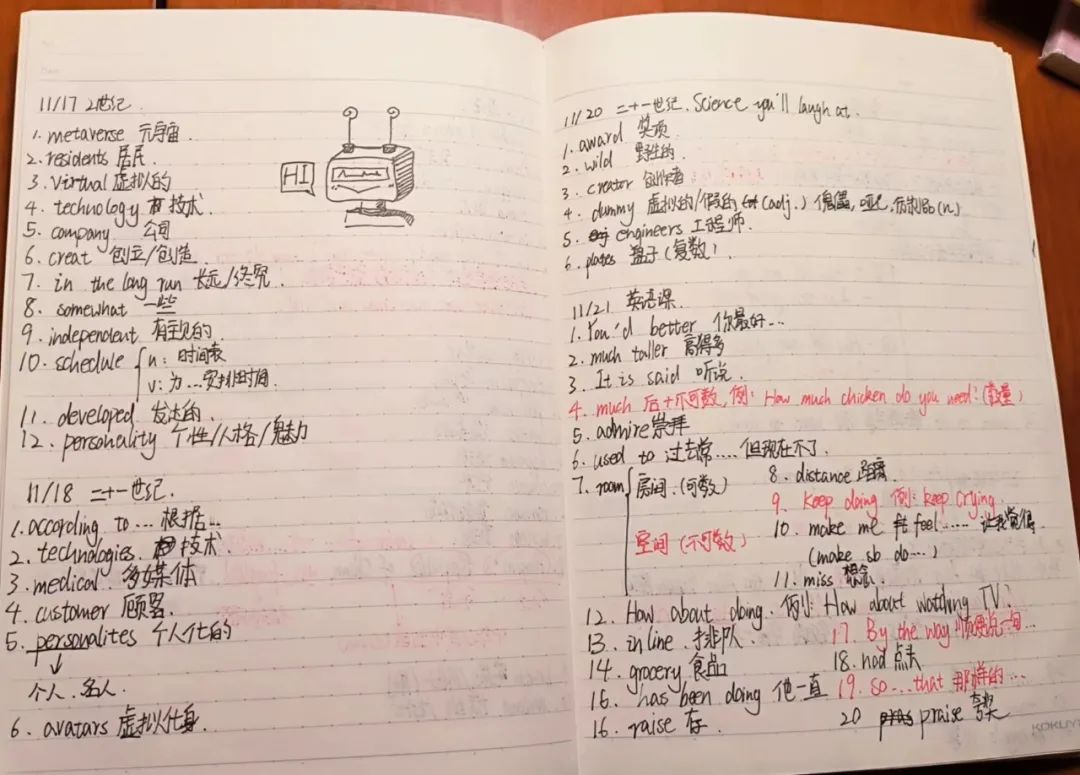 11/17 21世纪.
1. metaverse 元宇宙.
2. residents 居民
3. virtual 虚拟的
4. technology 技术.
5. company 公司
6. creat 创立/创造.
7. in the long run 长远/终究.
8. somewhat 一些
9. independent 有主见的.
10. schedule n: 时间表
v: 为...安排时间.
11. developed 发达的.
12. personality 个性/人格/魅力
HI
11/18 二十一世纪.
1. according to ... 根据...
2. technologies. 技术.
3. medical 多媒体
4. customer 顾客.
5. personalites 个人化的
↓
个人.名人.
6. avatars 虚拟化身
11/20 二十一世纪. Science you'll laugh at.
1. award 奖项
2. wild 野生的
3. creator 创作者
4. dummy 虚拟的/假的 (adj.) 傀儡, 仿制品(n)
5. engineers 工程师.
6. plates 盘子(复数)
11/21 英语课.
1. You'd better 你最好...
2. much taller 高得多
3. It is said 听说.
4. much 后+不可数, 例: How much chicken do you need?
5. admire 崇拜
6. used to 过去常....但现在不了.
7. room 房间 (可数)
空间 (不可数)
8. distance 距离
9. Keep doing 例: keep crying.
10. make me feel ...... 让我觉得
(make sb do...)
11. miss 想念
12. How about doing. 例: How about watching TV?
13. in line. 排队
14. grocery 食品
16. has been doing 他一直
16. raise 存
17. By the way 顺便说一句...
18. nod 点头
19. so...that 那样的...
20 praise 夸奖
KOKUYO